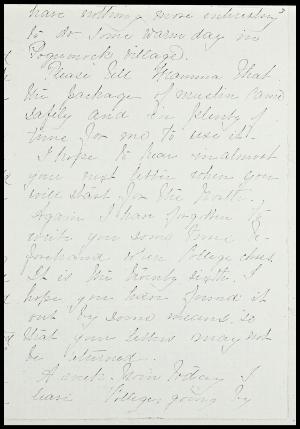 have nothing more interesting
to do some warm day in
Pogumock village).
Please tell Mamma that
the package of muslin came
safely and in plenty of
time for me to use it.
I hope to hear in almost
your next letter when you
will start for the North.
Again I have forgotten to
write you some time be-
forehand when College closes.
It is the twenty sixth. I
hope you have found it
out by some means, so
that your letters may not
be returned.
A week from today I
leave College, going by